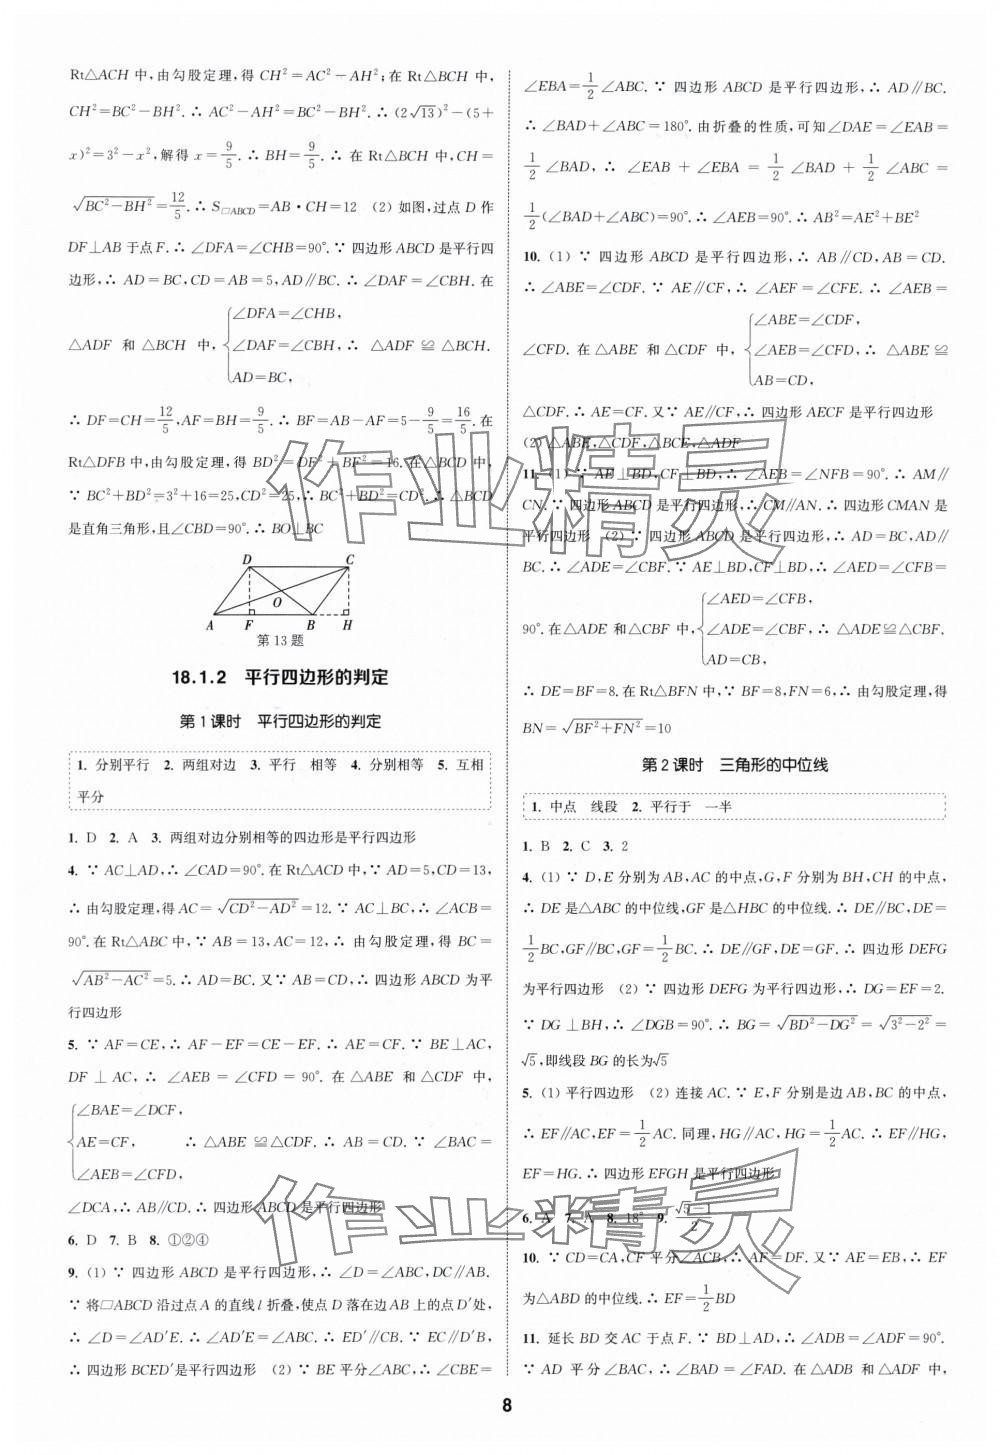 Rt△ACH 中,由勾股定理,得 CH²=AC²-AH²;在 Rt△BCH 中,
CH²=BC²-BH².∴ AC²-AH²=BC²-BH².∴ (2√13)²-(5+
x)²=3²-x²,解得 x=9/5.∴ BH=9/5.∴ 在 Rt△BCH 中,CH=
√(BC²-BH²)=12/5.∴ S□ABCD=AB·CH=12 (2) 如图,过点 D 作
DF⊥AB 于点 F.∴ ∠DFA=∠CHB=90°.∵ 四边形 ABCD 是平行四
边形,∴ AD=BC,CD=AB=5,AD∥BC.∴ ∠DAF=∠CBH.在
△ADF 和 △BCH 中,{∠DFA=∠CHB, ∠DAF=∠CBH, AD=BC, ∴ △ADF ≌ △BCH.
∴ DF=CH=12/5,AF=BH=9/5.∴ BF=AB-AF=5-9/5=16/5.在
Rt△DFB 中,由勾股定理,得 BD²=DF²+BF²=16.在△BCD 中,
∵ BC²+BD²=3²+16=25,CD²=25,∴ BC²+BD²=CD².∴ △BCD
是直角三角形,且∠CBD=90°.∴ BO⊥BC
D C O A F B H
第13题
18.1.2 平行四边形的判定
第1课时 平行四边形的判定
1. 分别平行 2. 两组对边 3. 平行 相等 4. 分别相等 5. 互相
平分
1. D 2. A 3. 两组对边分别相等的四边形是平行四边形
4. ∵ AC⊥AD,∴ ∠CAD=90°.在 Rt△ACD 中,∵ AD=5,CD=13,
∴ 由勾股定理,得 AC=√(CD²-AD²)=12.∵ AC⊥BC,∴ ∠ACB=
90°.在 Rt△ABC 中,∵ AB=13,AC=12,∴ 由勾股定理,得 BC=
√(AB²-AC²)=5.∴ AD=BC.又∵ AB=CD,∴ 四边形 ABCD 为平
行四边形
5. ∵ AF=CE,∴ AF-EF=CE-EF.∴ AE=CF.∵ BE⊥AC,
DF⊥AC,∴ ∠AEB=∠CFD=90°.在△ABE 和△CDF 中,
{∠BAE=∠DCF, AE=CF, ∠AEB=∠CFD, ∴ △ABE≌△CDF.∴ AB=CD.∵ ∠BAC=
∠DCA,∴ AB∥CD.∴ 四边形 ABCD 是平行四边形
6. D 7. B 8. ①②④
9. (1) ∵ 四边形 ABCD 是平行四边形,∴ ∠D=∠ABC,DC∥AB.
∵ 将□ABCD 沿过点 A 的直线 l 折叠,使点 D 落在边 AB 上的点 D′处,
∴ ∠D=∠AD′E.∴ ∠AD′E=∠ABC.∴ ED′∥CB.∵ EC∥D′B,
∴ 四边形 BCED′是平行四边形 (2) ∵ BE 平分∠ABC,∴ ∠CBE=
∠EBA=1/2∠ABC.∵ 四边形 ABCD 是平行四边形,∴ AD∥BC.
∴ ∠BAD+∠ABC=180°.由折叠的性质,可知∠DAE=∠EAB=
1/2∠BAD,∴ ∠EAB+∠EBA=1/2∠BAD+1/2∠ABC=
1/2(∠BAD+∠ABC)=90°.∴ ∠AEB=90°.∴ AB²=AE²+BE²
10. (1) ∵ 四边形 ABCD 是平行四边形,∴ AB∥CD,AB=CD.
∴ ∠ABE=∠CDF.∵ AE∥CF,∴ ∠AEF=∠CFE.∴ ∠AEB=
∠CFD.在△ABE 和△CDF 中,{∠ABE=∠CDF, ∠AEB=∠CFD, AB=CD, ∴ △ABE≌
△CDF.∴ AE=CF.又∵ AE∥CF,∴ 四边形 AECF 是平行四边形
(2) △ABE,△CDF,△BCE,△ADF
11. (1) ∵ AE⊥BD,CF⊥BD,∴ ∠AEB=∠NFB=90°.∴ AM∥
CN.∵ 四边形 ABCD 是平行四边形,∴ CM∥AN.∴ 四边形 CMAN 是
平行四边形 (2) ∵ 四边形 ABCD 是平行四边形,∴ AD=BC,AD∥
BC.∴ ∠ADE=∠CBF.∵ AE⊥BD,CF⊥BD,∴ ∠AED=∠CFB=
90°.在△ADE 和△CBF 中,{∠AED=∠CFB, ∠ADE=∠CBF, AD=CB, ∴ △ADE≌△CBF.
∴ DE=BF=8.在 Rt△BFN 中,∵ BF=8,FN=6,∴ 由勾股定理,得
BN=√(BF²+FN²)=10
第2课时 三角形的中位线
1. 中点 线段 2. 平行于 一半
1. B 2. C 3. 2
4. (1) ∵ D,E 分别为 AB,AC 的中点,G,F 分别为 BH,CH 的中点,
∴ DE 是△ABC 的中位线,GF 是△HBC 的中位线.∴ DE∥BC,DE=
1/2BC,GF∥BC,GF=1/2BC.∴ DE∥GF,DE=GF.∴ 四边形 DEFG
为平行四边形 (2) ∵ 四边形 DEFG 为平行四边形,∴ DG=EF=2.
∵ DG⊥BH,∴ ∠DGB=90°.∴ BG=√(BD²-DG²)=√(3²-2²)=
√5,即线段 BG 的长为√5
5. (1) 平行四边形 (2) 连接 AC.∵ E,F 分别是边 AB,BC 的中点,
∴ EF∥AC,EF=1/2AC.同理,HG∥AC,HG=1/2AC.∴ EF∥HG,
EF=HG.∴ 四边形 EFGH 是平行四边形
6. A 7. A 8. 18° 9. (√5-1)/2
10. ∵ CD=CA,CF 平分∠ACB,∴ AF=DF.又∵ AE=EB,∴ EF
为△ABD 的中位线.∴ EF=1/2BD
11. 延长 BD 交 AC 于点 F.∵ BD⊥AD,∴ ∠ADB=∠ADF=90°.
∵ AD 平分∠BAC,∴ ∠BAD=∠FAD.在△ADB 和△ADF 中,
8
作业精灵
作业精灵